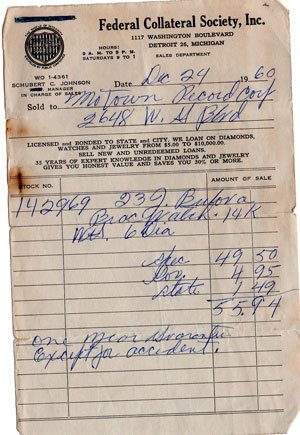 Federal Collateral Society, Inc.
1117 WASHINGTON BOULEVARD
DETROIT 26, MICHIGAN
HOURS:
9 A. M. TO 5 P. M.
SATURDAYS 9 TO 1
SALES DEPARTMENT
WO 1-4361
SCHUBERT C. JOHNSON
MANAGER
IN CHARGE OF SALES
Date Dec 24 1960
Sold to Motown Record Corp
2648 W. Gd Blvd
LICENSED and BONDED TO STATE and CITY. WE LOAN ON DIAMONDS,
WATCHES AND JEWELRY FROM $5.00 TO $10,000.00.
SELL NEW AND UNREDEEMED LOANS.
35 YEARS OF EXPERT KNOWLEDGE IN DIAMONDS AND JEWELRY
GIVES YOU HONEST VALUE AND SAVES YOU 20% OR MORE.
STOCK NO.
AMOUNT OF SALE
142969 23 J Bulova
Brac Watch. 14K
6 Dia
Spec 49 50
Gov. 4 95
State 1 49
55.94
One year Guarantee
Except for accident.